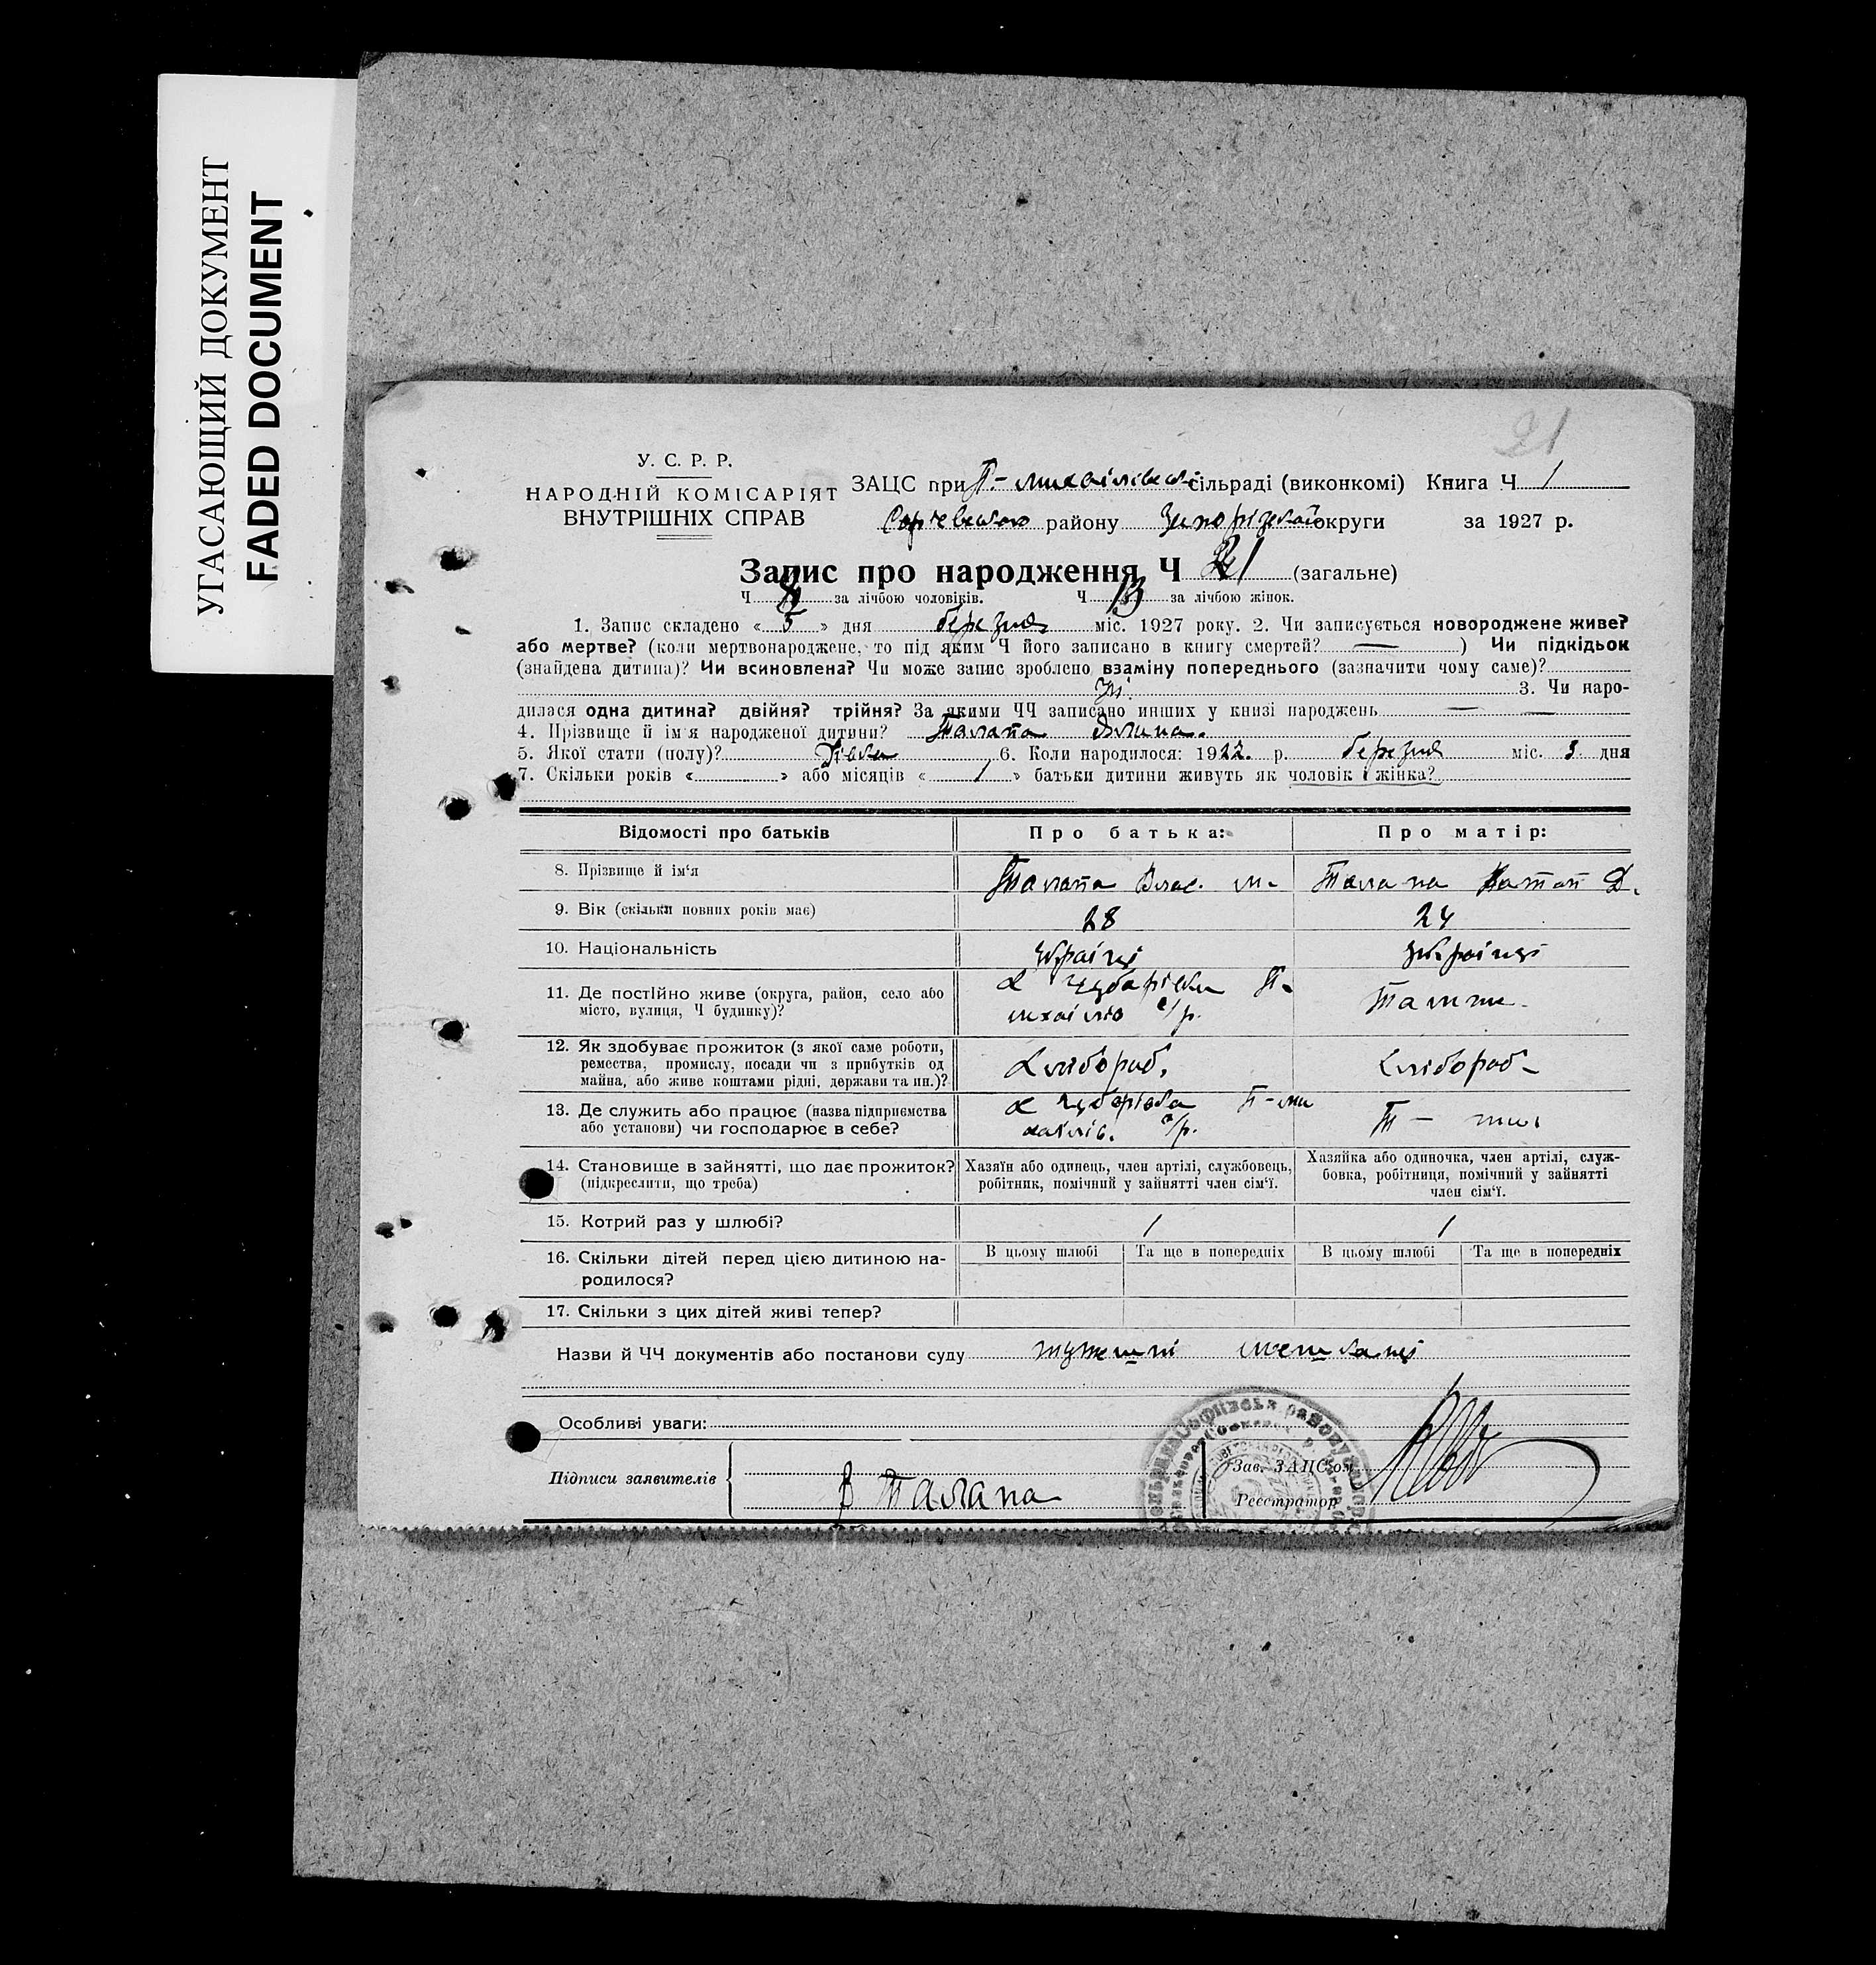 УГАСАЮЩИЙ ДОКУМЕНТ
FADED DOCUMENT
21
У. С. Р. Р.
НАРОДНІЙ КОМІСАРІЯТ
ВНУТРІШНІХ СПРАВ
ЗАЦС при П.-Михайлівськ. сільраді (виконкомі) Книга Ч 1
району Запорізької округи за 1927 р.
Запис про народження Ч 21 (загальне)
Ч 8 за лічбою чоловіків. Ч 13 за лічбою жінок.
1. Запис складено « 5 » дня березня міс. 1927 року. 2. Чи записується новороджене живе?
або мертве? (коли мертвонароджене, то під яким Ч його записано в книгу смертей? — ) Чи підкідьок
(знайдена дитина)? Чи всиновлена? Чи може запис зроблено взаміну попереднього (зазначити чому саме)?
3. Чи наро-
дилася одна дитина? двійня? трійня? За якими ЧЧ записано инших у книзі народжень — —
4. Прізвище й ім'я народженої дитини? Талапа
5. Якої стати (полу)? Дівка 6. Коли народилося: 1922. р. березня міс. 3 дня
7. Скільки років « » або місяців « 1 » батьки дитини живуть як чоловік і жінка?
Відомості про батьків Про батька: Про матір:
8. Прізвище й ім'я Талапа Влас. М. Талапа Натал Д.
9. Вік (скільки повних років має) 28 24
10. Національність україці україці
11. Де постійно живе (округа, район, село або
місто, вулиця, Ч будинку)?
х Чубарівка П-
с/р.
12. Як здобуває прожиток (з якої саме роботи,
ремества, промислу, посади чи з прибутків од
майна, або живе коштами рідні, держави та ин.)?
Хлібороб. Хлібороб-
13. Де служить або працює (назва підприємства
або установи) чи господарює в себе?
х Чубарівка П-Ми
хайлів. с/р.
Т — ж
14. Становище в зайнятті, що дає прожиток?
(підкреслити, що треба)
Хазяїн або одинець, член артілі, службовець,
робітник, помічний у зайнятті член сім'ї.
Хазяйка або одиночка, член артілі, служ-
бовка, робітниця, помічний у зайнятті
член сім'ї.
15. Котрий раз у шлюбі? 1 1
16. Скільки дітей перед цією дитиною на-
родилося?
В цьому шлюбі Та ще в попередніх В цьому шлюбі Та ще в попередніх
17. Скільки з цих дітей живі тепер?
Назви й ЧЧ документів або постанови суду тутешні мешканці
Особливі уваги:
Підписи заявителів
В Талапа
Зав. ЗАЦС'ом
Реєстратор